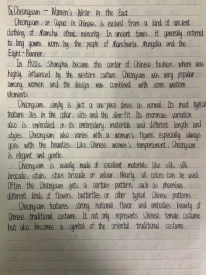 5. Cheongsam – Women's Wear in the East
Cheongsam or Qipao in Chinese is evolved from a kind of ancient
clothing of Manchu ethnic minority. In ancient times, it generally referred
to long gowns worn by the people of Manchuria, Mongolia and the
Eight-Banner.
In 1920s Shanghai became the center of Chinese fashion, where was
highly influenced by the western culture. Cheongsam was very popular
among women, and the design was combined with some western
elements.
Cheongsam, simply is just a one-piece dress as normal. Its most typical
features lies in the collar, slits and the slim-fit. Its enormous variation
also is embodied in its embroidery, materials and different length and
styles. Cheongsam also varies with a woman's figure, especially always
goes with the beauties. Like Chinese women's temperament, Cheongsam
is elegant and gentle.
Cheongsam is usually made of excellent materials like silk, silk
brocade, satin, satin brocade or velour. Nearly all colors can be used.
Often the Cheongsam gets a certain pattern, such as phoenixes,
different kinds of flowers, butterflies or other typical Chinese patterns.
Cheongsam features strong national flavor and embodies beauty of
Chinese traditional costume. It not only represents Chinese female costume
but also becomes a symbol of the oriental traditional costume.